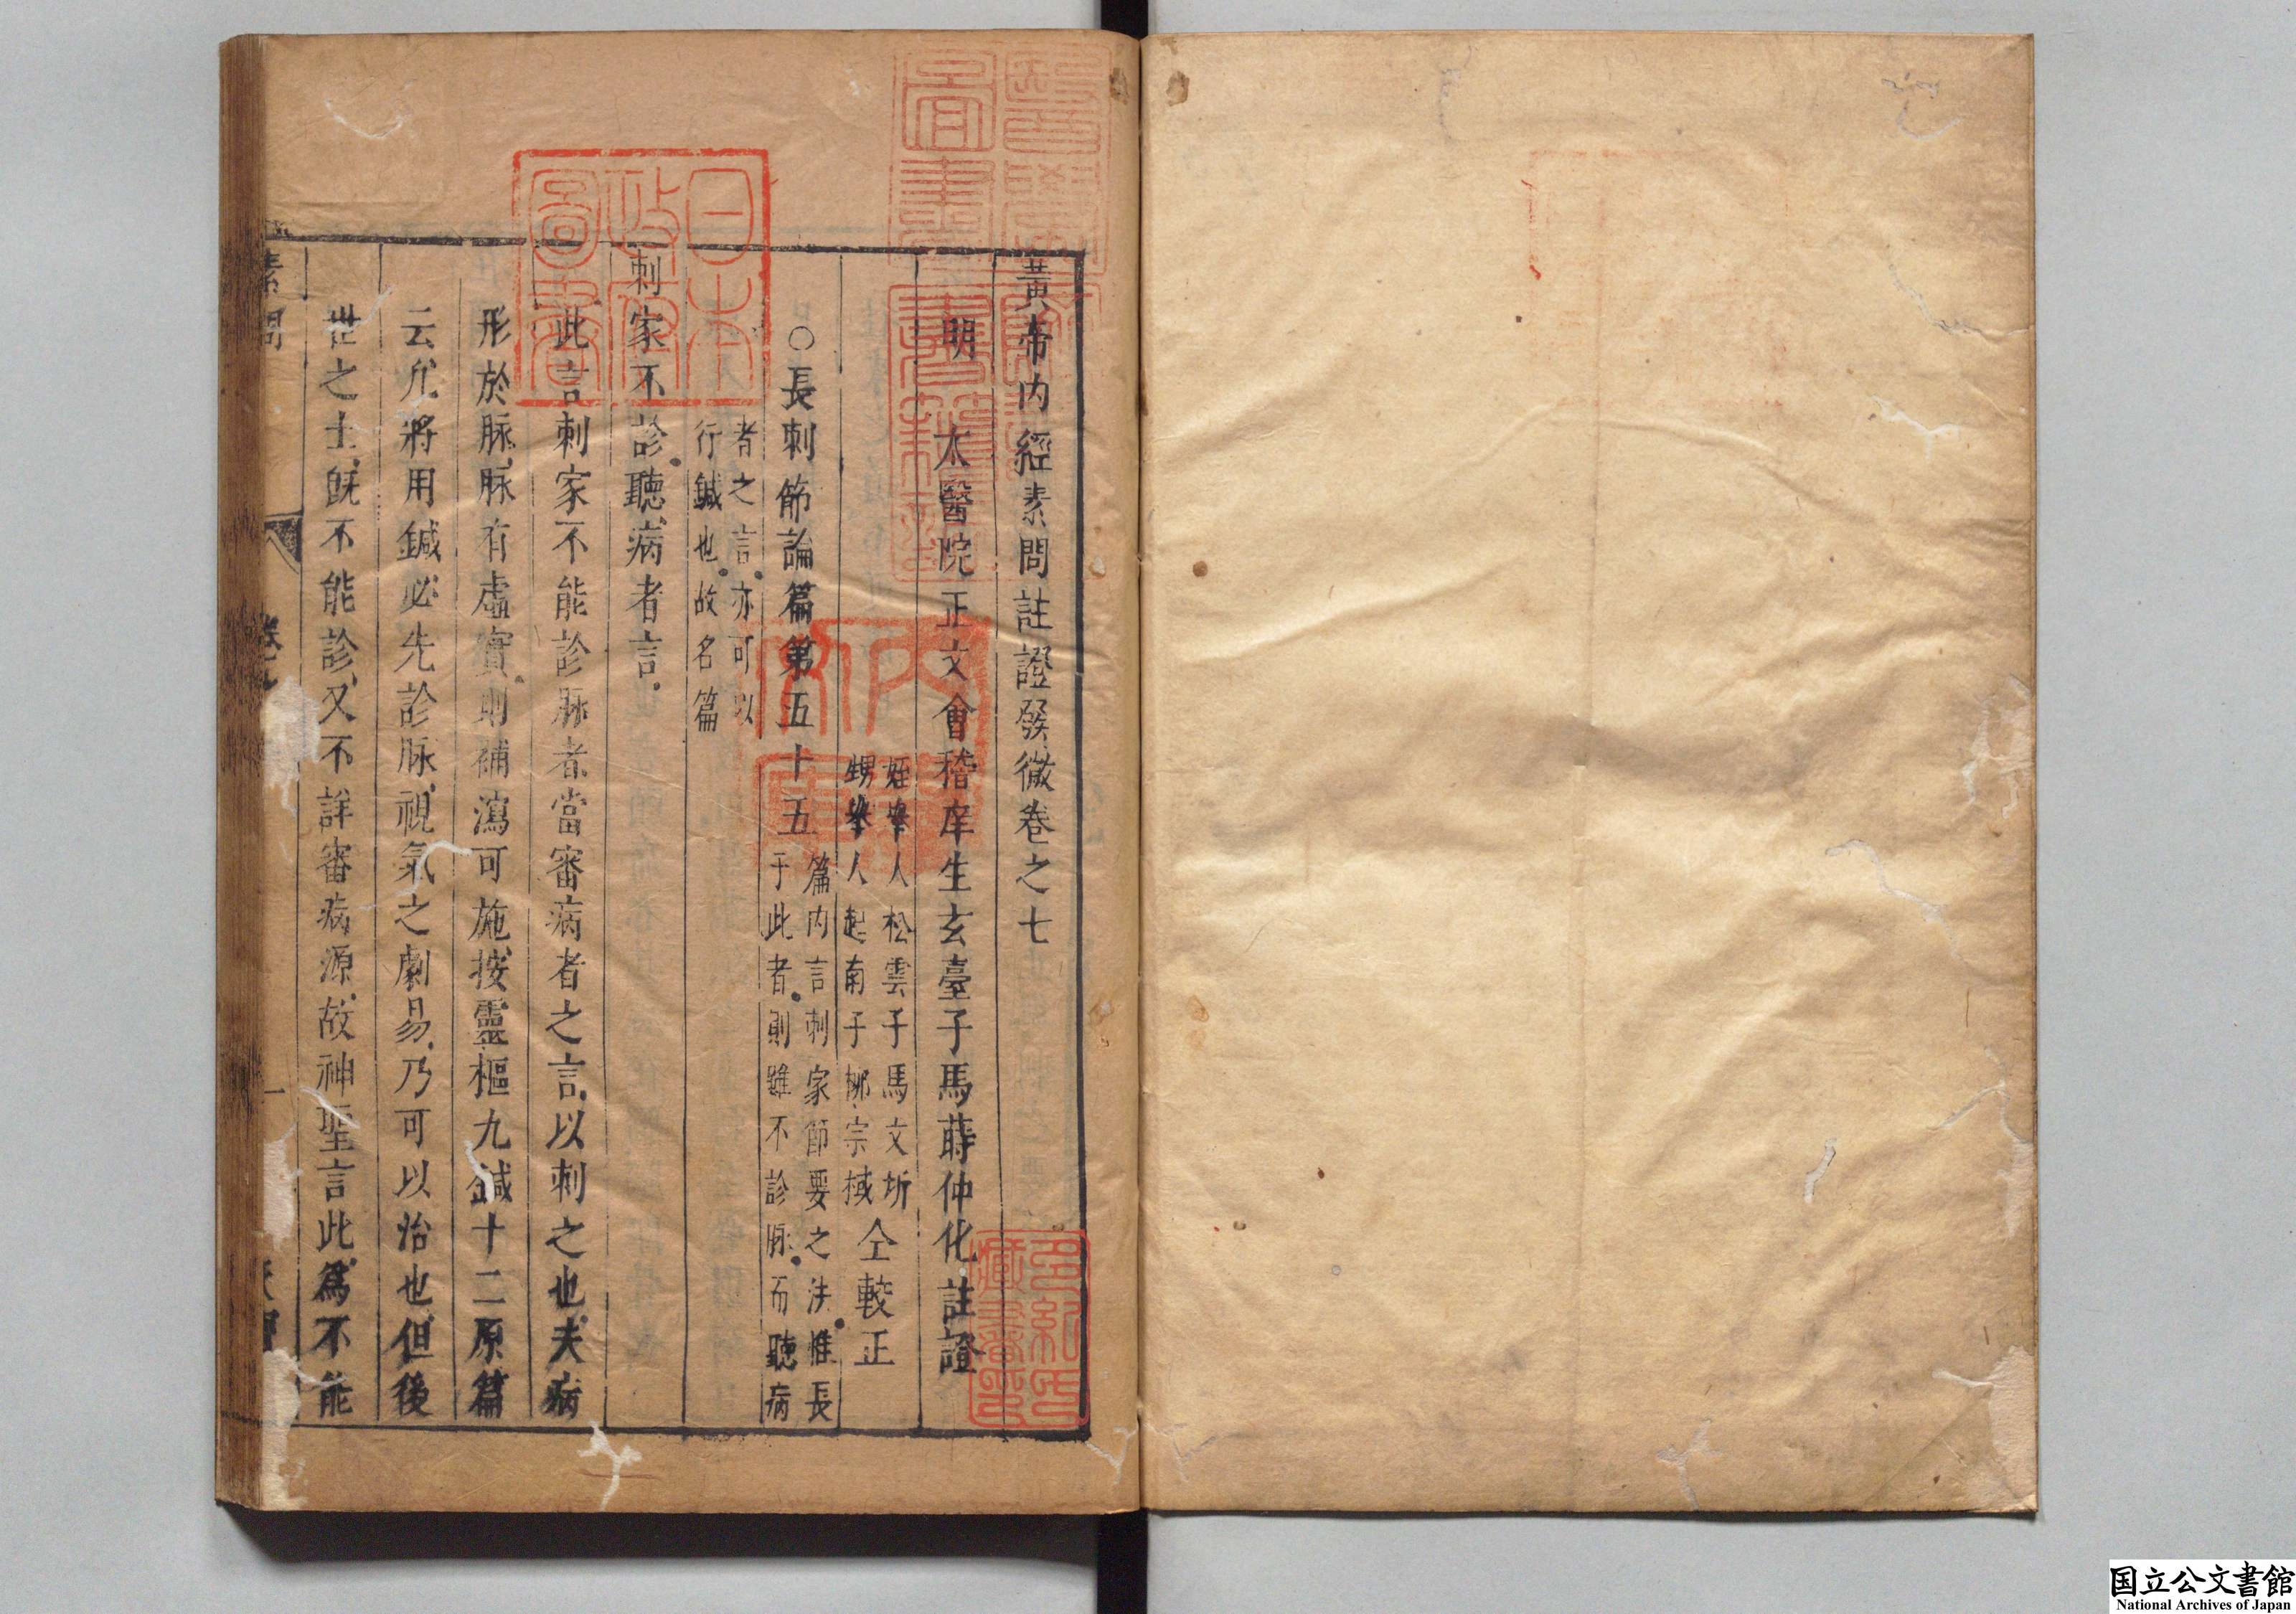 黃帝內經素問註證發微卷之七
明 太醫院正文會稽庠生玄臺子馬蒔仲化註證
姪舉人松雲子馬文圻
甥舉人起南子柳宗棫
仝較正
○長刺節論篇第五十五
篇內言刺家節要之法惟長
于此者則雖不診脉而聽病
者之言亦可以
行鍼也故名篇
刺家不診聽病者言
此言刺家不能診脉者當審病者之言以刺之也夫病
形於脉脉有虛實則補瀉可施按靈樞九鍼十二原篇
云凡將用鍼必先診脉視氣之劇易乃可以治也但後
世之士旣不能診又不詳審病源故神聖言此爲不能
素問
一
日本
政府
圖書
醫學
圖書
多紀氏
藏書印
国立公文書館
National Archives of Japan